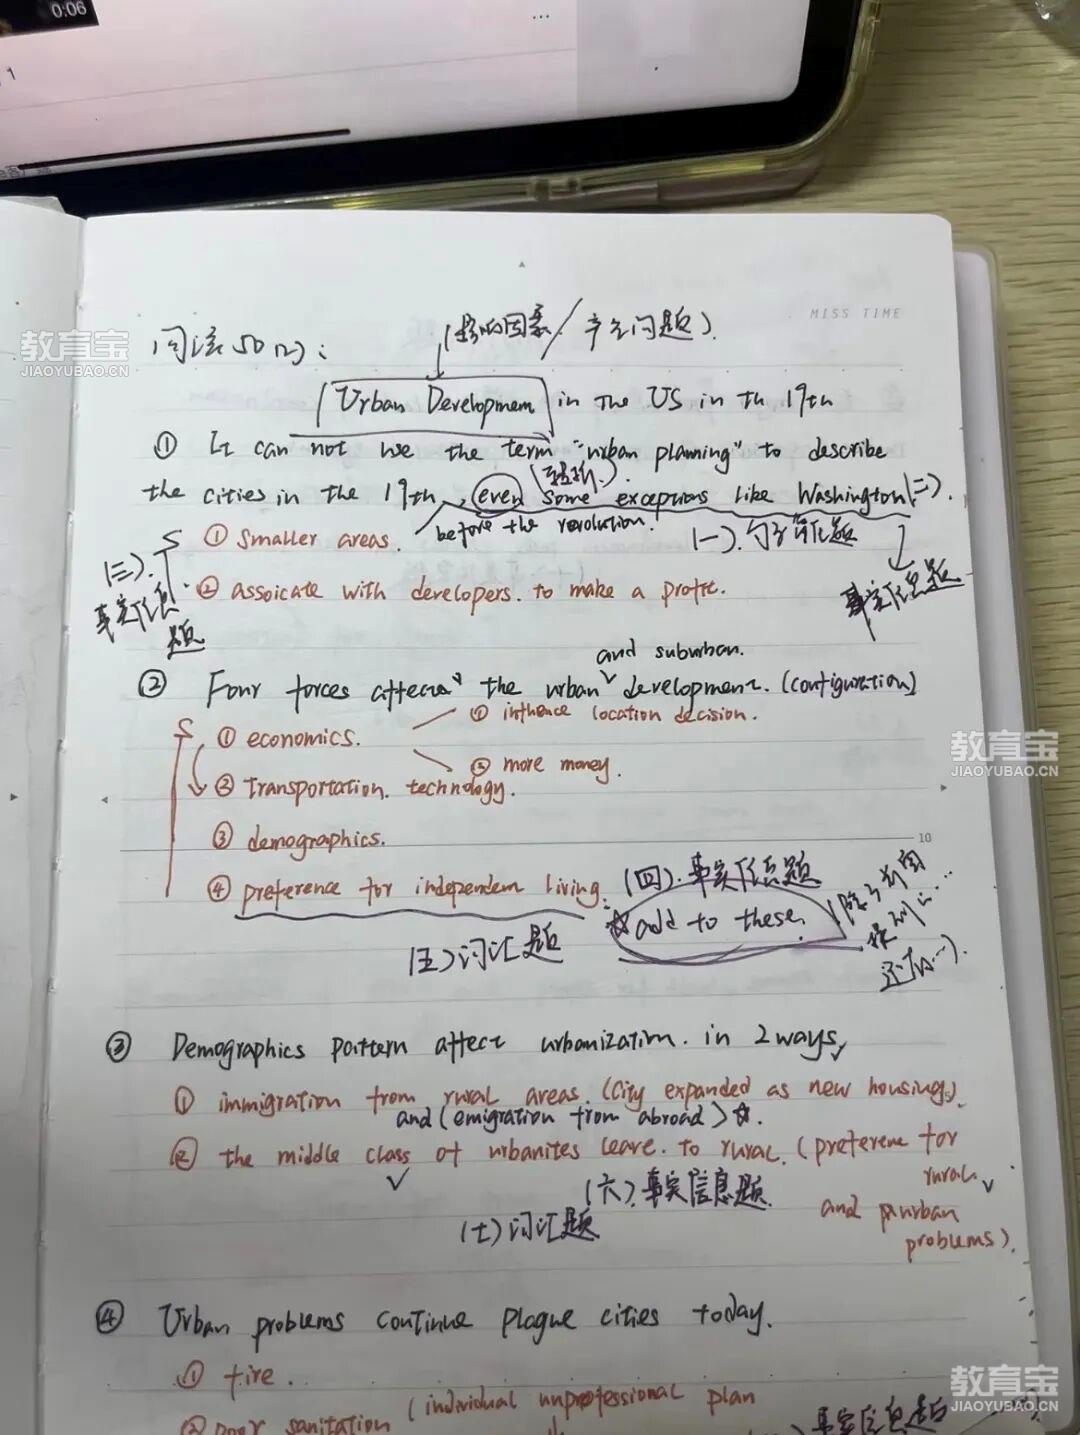 0:06
MISS TIME
教育宝
JIAOYUBAO.CN
(影响因素/产生问题).
Urban Development in the US in th 19th
① It can not use the term "urban planning" to describe
the cities in the 19th, even some exceptions like Washington(二).
before the revolution.
① smaller areas.
(一).句子简化题
(三).
事实信息题
② assoicate with developers. to make a profit.
事实信息题
and suburban.
② Four forces affects the urban development. (configuration)
① economics.
① influence location decision.
② more money.
② transportation. technology.
③ demographics.
10
④ preference for independent living.
(四).事实信息题
☆ add to these.
(五)词汇题
③ Demographics pattern affect urbanization. in 2 ways,
① immigration from rural areas. (City expanded as new housings).
and (emigration from abroad) ☆.
② the middle class of urbanites leave. to rural. (preference for
rural.
(六).事实信息题.
and
problems).
(七)词汇题
④ Urban problems continue plague cities today.
① fire.
② poor sanitation (individual unprofessional plan
事实信息题
教育宝
JIAOYUBAO.CN
教育宝
JIAOYUBAO.CN